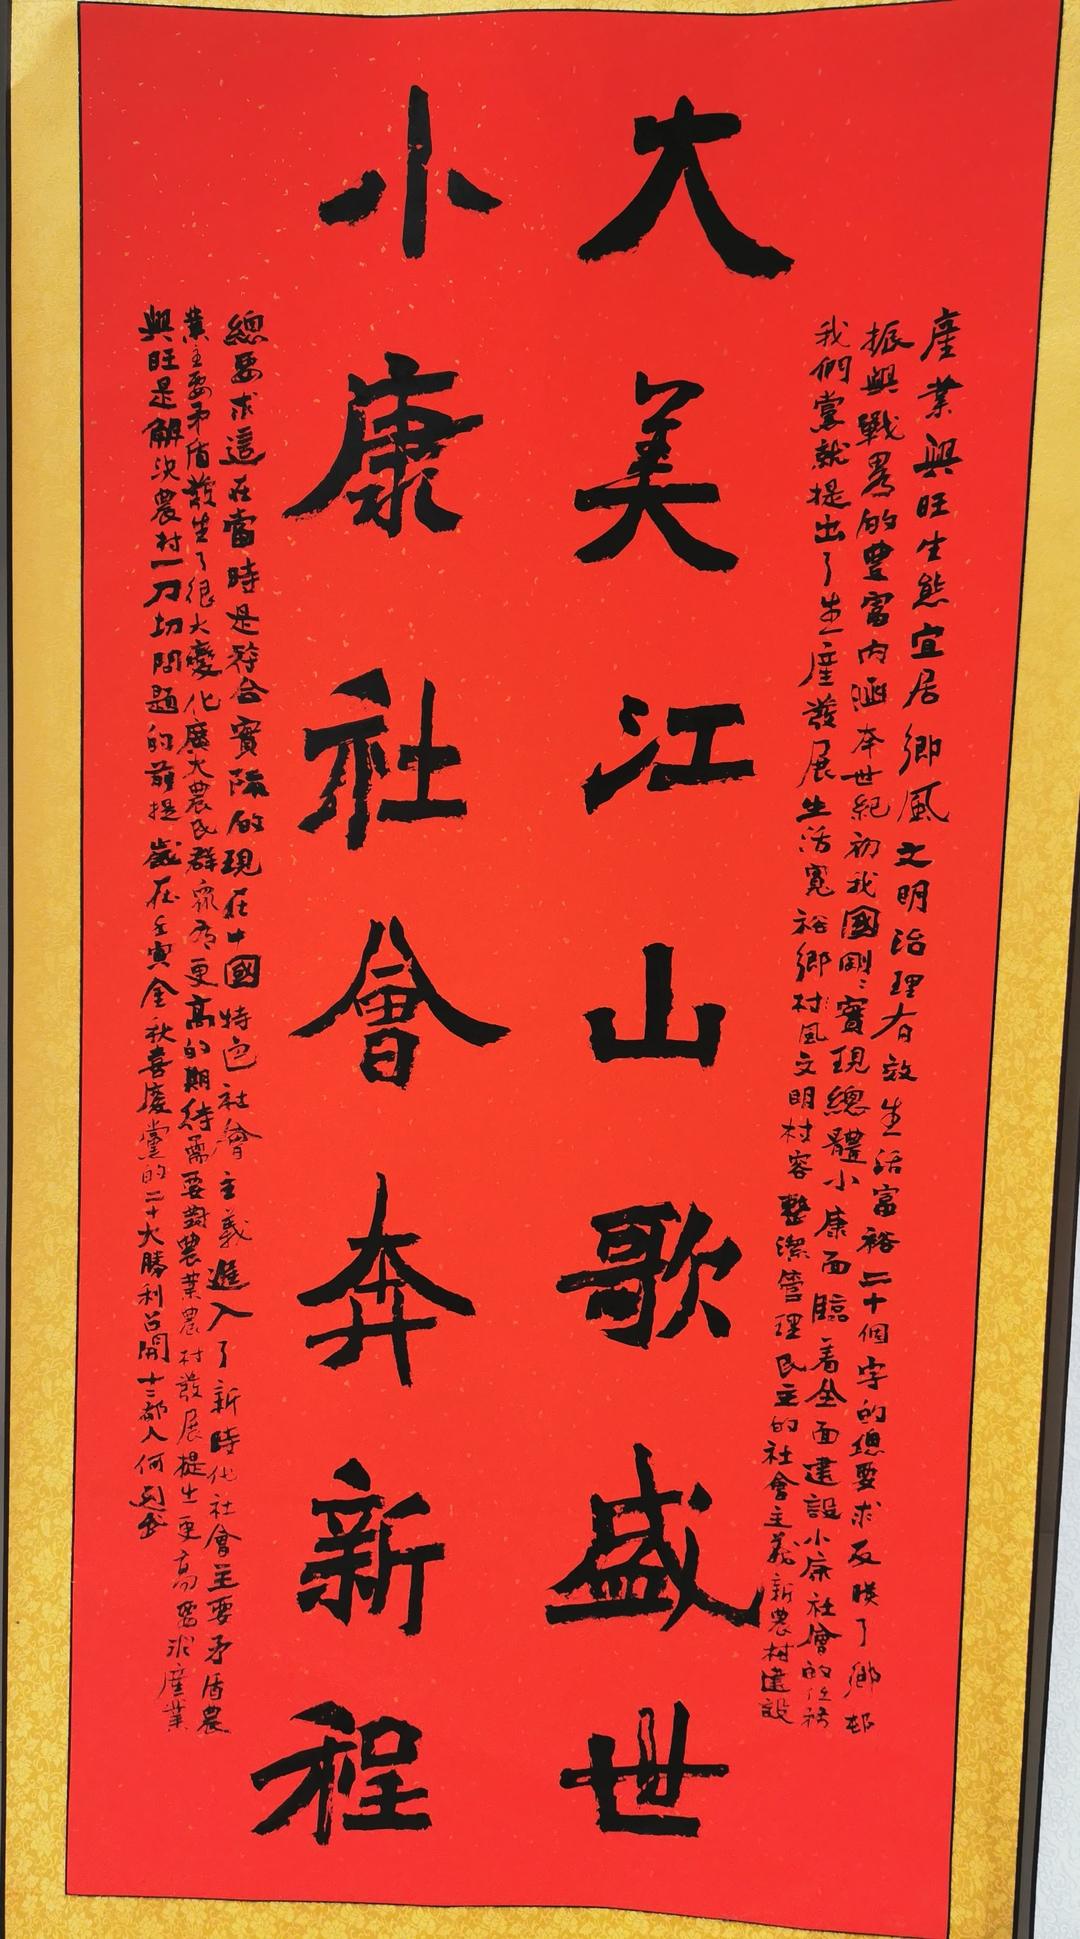 產業興旺生態宜居鄉風文明治理有效生活富裕二十個字的總要求反映了鄉邨
振興戰略的豐富內涵本世紀初我國剛剛實現總體小康面臨着全面建設小康社會的任務
我們黨就提出了生產發展生活寬裕鄉村風文明村容整潔管理民主的社會主義新農村建設
大美江山歌盛世
小康社會奔新程
總要求這在當時是符合實際的現在中國特色社會主義進入了新時代社會主要矛盾農
業主要矛盾發生了很大變化廣大農民群眾有更高的期待需要對農業農村發展提出更高要求產業
興旺是解決農村一刀切問題的前提歲在壬寅金秋喜慶黨的二十大勝利召開十二部人何